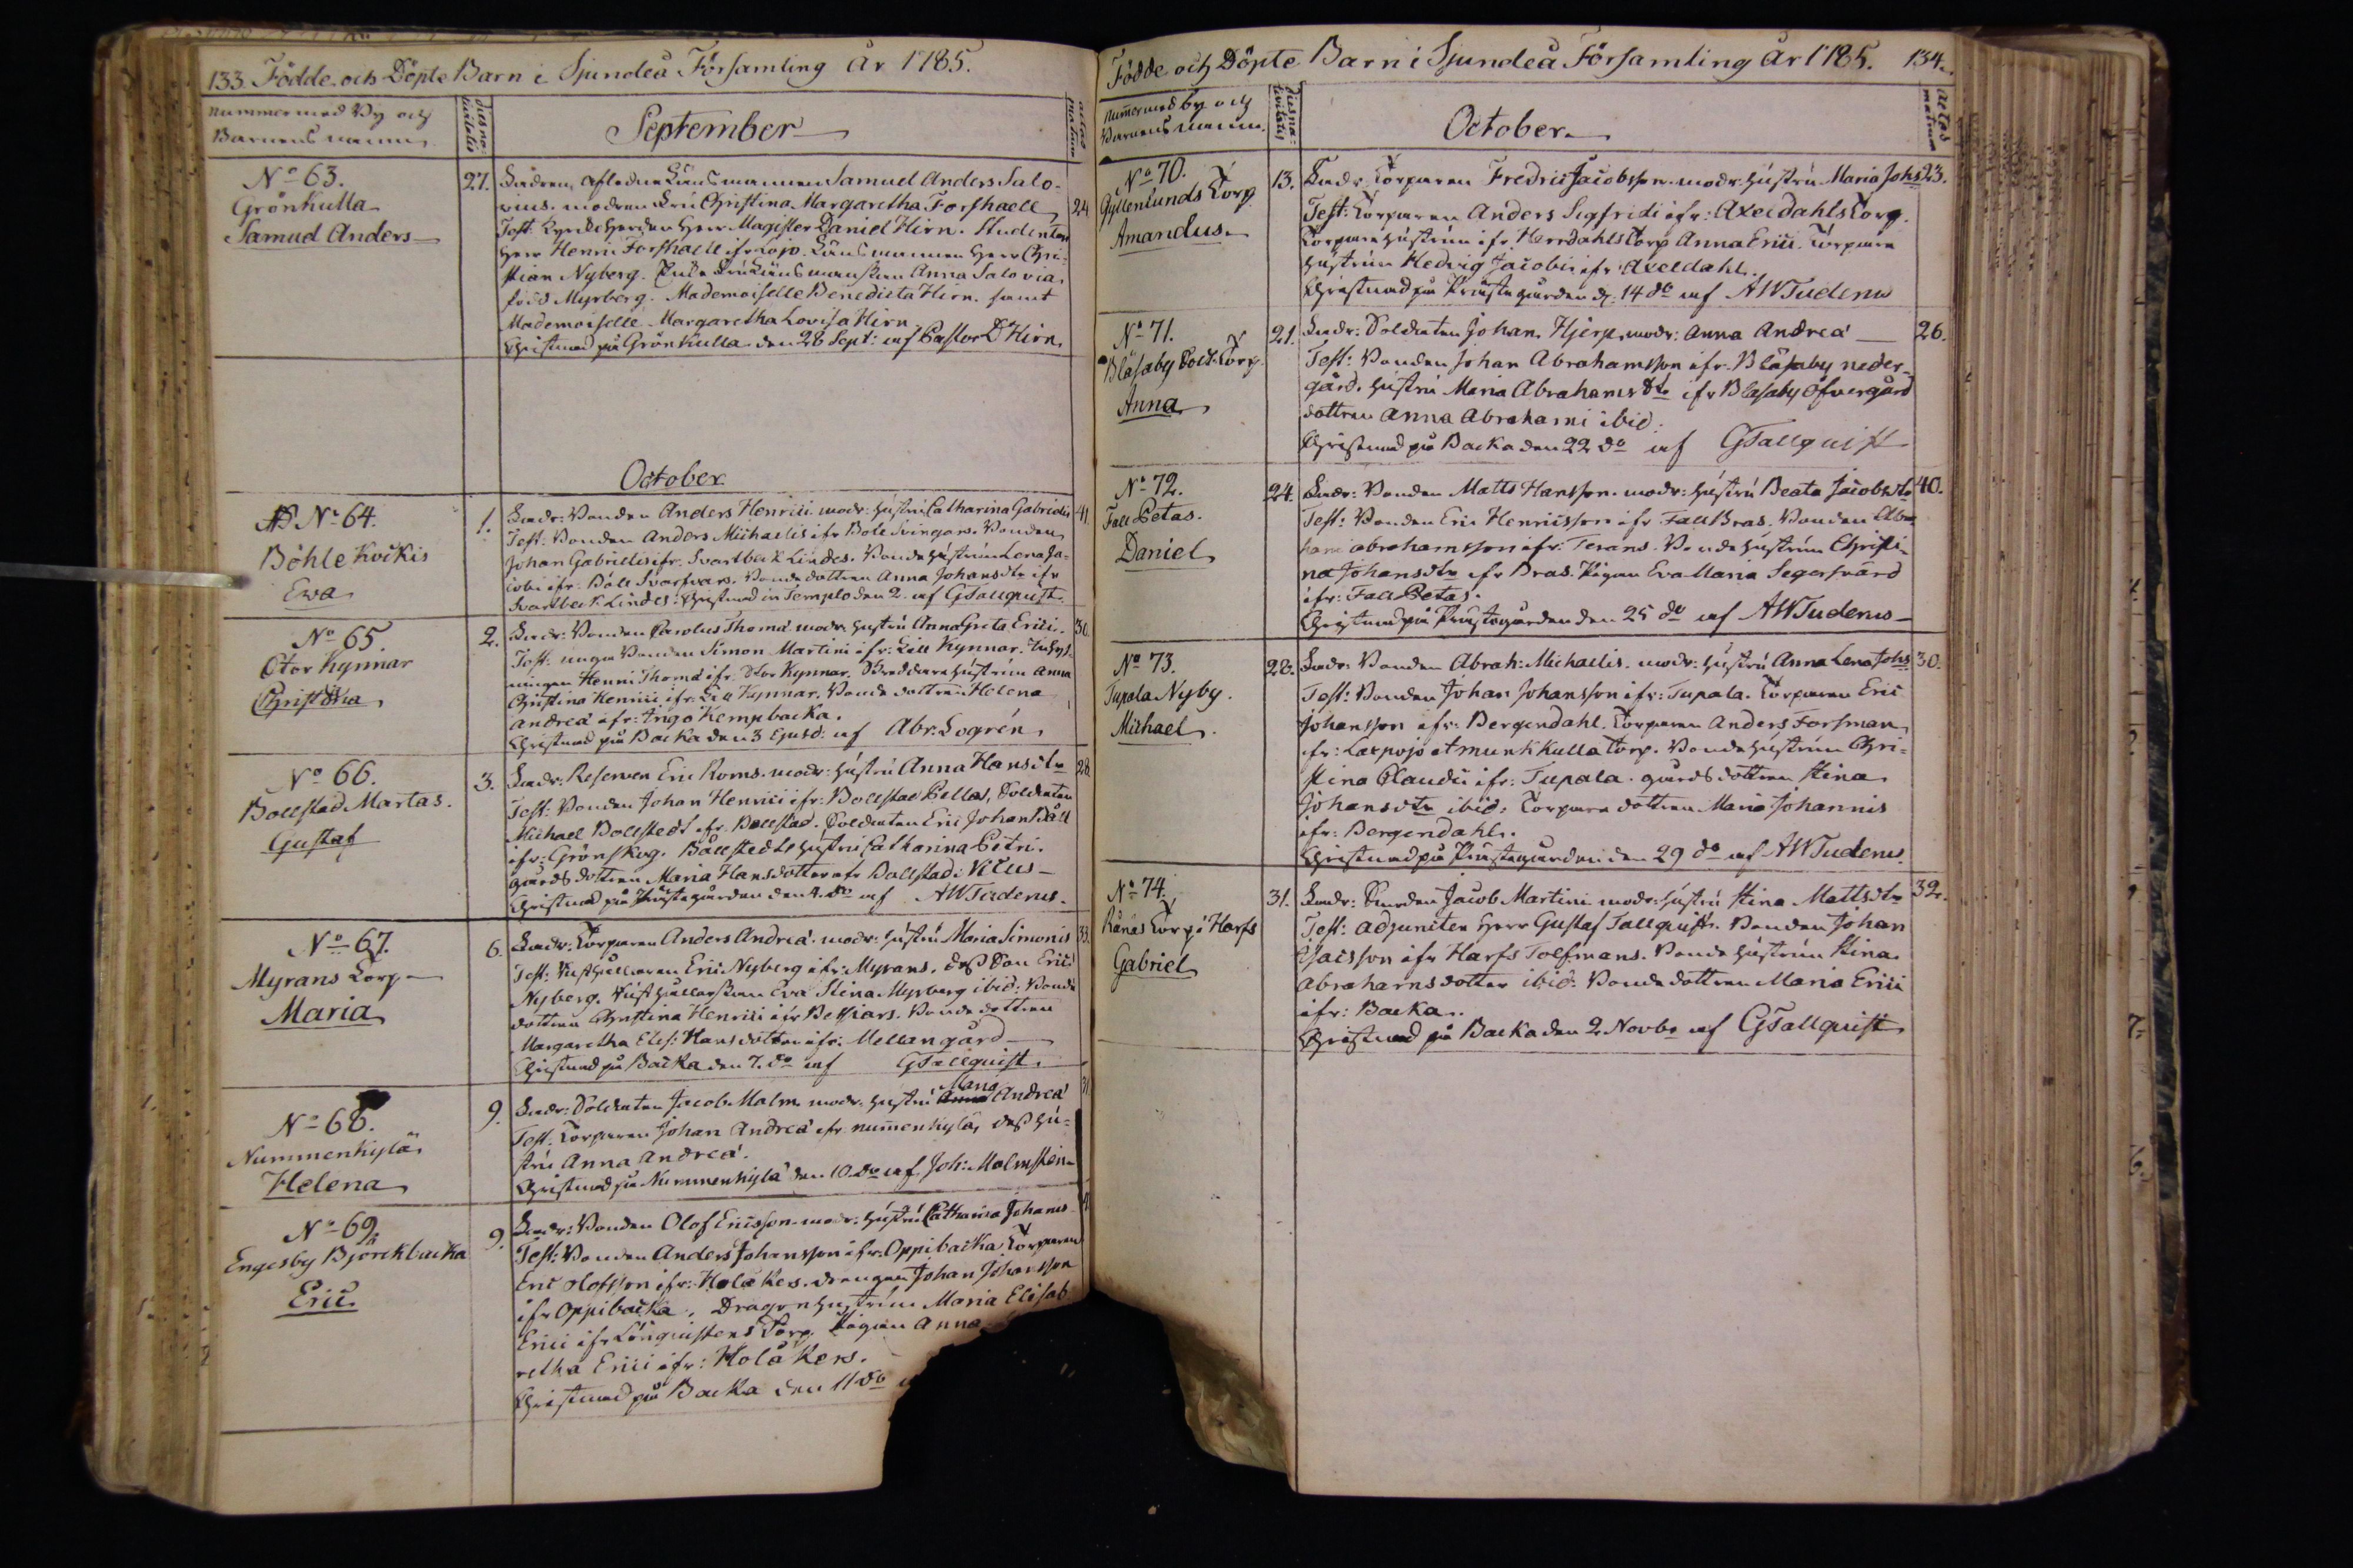 133. Födde och Döpte Barn i Sjundeå Församling År 1785.
Nummer med By och
Barnens namn
dies na-
tivitatis
September
ætas
matrum
No 63.
Grönkulla
Samuel Anders
27.
Fadren, afledne Länsmannen Samuel Anders Salo-
vius. modren Fru Christina Margaretha Forshaell
24
Test: Kyrkoherden Herr Magister Daniel Hirn. Studenten
Herr Henric Forshaell ifr Lojo. Länsmannen Herr Chri-
stian Nyberg. Länsmanskan Anna Salovia,
född Myrberg. Mademoiselle Benedicta Hirn. samt
Mademoiselle Margaretha Lovisa Hirn
Christnad på Grönkulla den 28 Sept: af Pastor D Hirn
October
No 64.
Böhle Kockis
Ewa
1.
Fadr: Bonden Anders Henrici modr: hustru Catharina Gabrielis
41
Test: Bonden Anders Michaelis ifr Bole Svingars. Bonden
Johan Gabrielis ifr. Svartbeck Lindes. Bonde hustrun Lena Ja-
cobi ifr. Böle Svartvars. Bonde dottren Anna Johans dtr ifr
Svartbeck Lindes. Christnad in Templo den 2. af GTallquist.
No 65.
Stor Kynnar
Christina
2.
Fadr: Bonden Carolus Thomæ modr hustru Anna Greta Erici.
30.
Test: unga Bonden Simon Martini ifr: Lill Kynnar. Inhys-
ningen Henric Thomæ ifr. Stor Kynnar. hustrun Anna
Christina Henrici ifr. Lill Kynnar. Bonde dottren Helena
Andreæ ifr: Ingo Kempbacka.
Christnad på Backa den 3 Ejusd: af Abr. Logrén
No 66.
Bollstad Martas.
Gustaf
3.
Fadr: Reserven Eric Roms. modr: hustru Anna Hans dtr
28.
Test: Bonden Johan Henrici ifr: Bollstad Pellas, Soldaten
Michael Bollstedt ifr. Bollstad. Soldaten Eric Johan Båll
ifr: Grönskog. Bållstedts hustru Catharina Petri.
gårds dottren Maria Hansdotter ifr Bollstad:
Christnad på Prästegården den 4. do af AWTudenus.
No 67.
Myrans Torp
Maria
6.
Fadr: Torparen Anders Andreæ. modr: hustru Maria Simonis
33.
Test: Eric Nyberg ifr: Myrans, dess Son Eric
Nyberg. Eva Stina Myrberg ibid: Bonde
dottren Christina Henrici ifr Bessiars. Bonde dottren
Margaretha Elis: Hans dotter ifr. Mellangård
Christnad på Backa den 7. do af GTallquist.
No 68.
Nummenkylä
Helena
9.
Maria
Fadr: Soldaten Jacob Malm modr. hustru Anna Andreæ
31
Test. Torparen Johan Andreæ ifr nummenkylä, dess hu-
stru Anna Andreæ.
Christnad på Nummenkylä den 10. do af Joh: Malmsten
No 69.
Engesby Björckbacka
Eric
9.
Fadr: Bonden Olof Ericsson modr: hustru Catharina Johannis
Test: Bonden Anders Johansson ifr: Oppibacka Torparen
Eric Olofsson ifr: Holåkers. drengen Johan Johansson
ifr Oppibacka. Dragon hustrun Maria Elisab
Erici ifr Lönqvistens Torp. Pigan Anna
retha Erici ifr: Holåkers.
Christnad på Backa den 11 do
Födde och Döpte Barn i Sjundeå Församling År 1785. 134.
Nummer med by och
Barnens namn.
dies na-
tivitatis
October
Aetas
matrum
No 70.
Gyllenlunds Torp
Amandus
13.
Fadr Torparen Fredric Jacobsson. modr: hustru Maria Johs
23.
Test: Torparen Anders Segfridi ifr: Axeldahls Torp.
Torpare hustrun ifr. Herrdahls Torp Anna Erici. Torpare
hustrun Hedvig Jacobi ifr Axeldahl.
Christnad på Prästegården d. 14 do af AWTudenus
No 71.
Blåsaby Sold. Torp
Anna
21.
Fadr: Soldaten Johan Hjerpe modr: Anna Andreæ
26.
Test: Bonden Johan Abrahamsson ifr. Blåsaby neder-
gård. hustru Maria Abrahams dtr ifr Blåsaby öfvergård
dottren Anna Abrahami ibid.
Christnad på Backa den 22 do af GTallquist
No 72.
Fall Petas.
Daniel
24.
Fadr: Bonden Matts Hansson. modr: hustru Beata Jacobs dtr
40.
Test: Bonden Eric Henricsson ifr Fall Bras. Bonden Abra
hami abrahamsson ifr: Terans. Bonde hustrun Christi-
na Johans dtr ifr Bras. Pigan Eva Maria Segersvärd
ifr: Fall Petas.
Christnad på Prästegården den 25 do af AWTudenus
No 73.
Tupala Nyby.
Michael
28.
Fadr: Bonden Abrah: Michaelis. modr: hustru Anna Lena Johs
30.
Test: Bonden Johan Johansson ifr: Tupala. Torparen Eric
Johansson ifr: Bergendahl. Torparen Anders Forsman
ifr: Laxpojo at munkkulla Torp. Bonde hustrun Chri-
stina Claudii ifr: Tupala. gårds dottren Stina
Johans dtr ibid. Torpare dottren Maria Johannis
ifr: Bergendahl.
Christnad på Prästegården den 29 do af AWTudenus
No 74.
Rånäs Torp i Harfs
Gabriel
31.
Fadr: Jacob Martini modr: hustru Stina Matts dtr
32.
Test: adjuncten Herr Gustaf Tallquist. Bonden Johan
Isacsson ifr Harfs Tolfmans. Bonde hustrun Stina
Abrahams dotter ibid: Bonde dottren Maria Erici
ifr: Backa.
Christnad på Backa den 2 Novbr af GTallquist